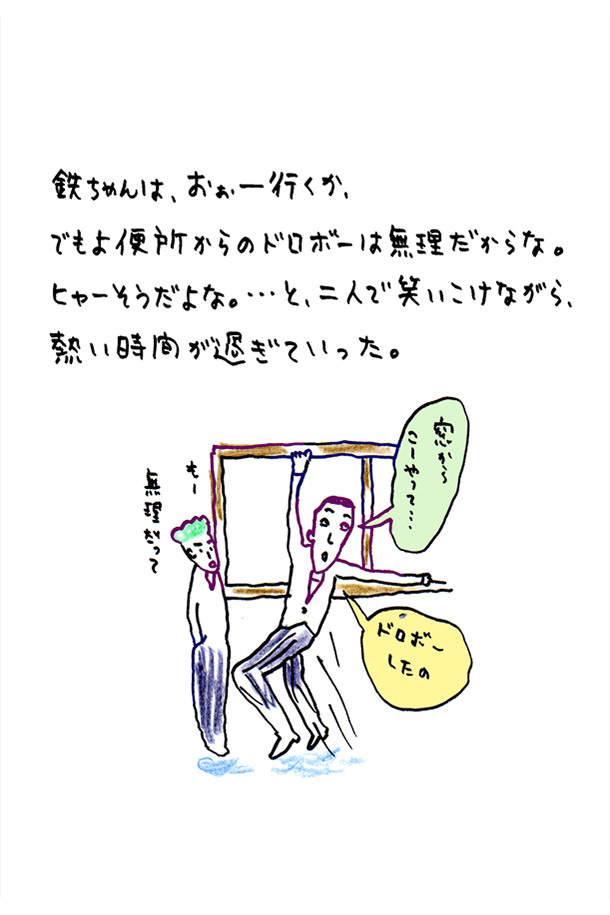 鉄ちゃんは、おぉー行くか、
でもよ便所からのドロボーは無理だからな。
ヒャーそうだよな。…と、二人で笑いこけながら、
熱い時間が過ぎていった。
窓から
こーやって…
もー
無理だって
ドロボー
したの